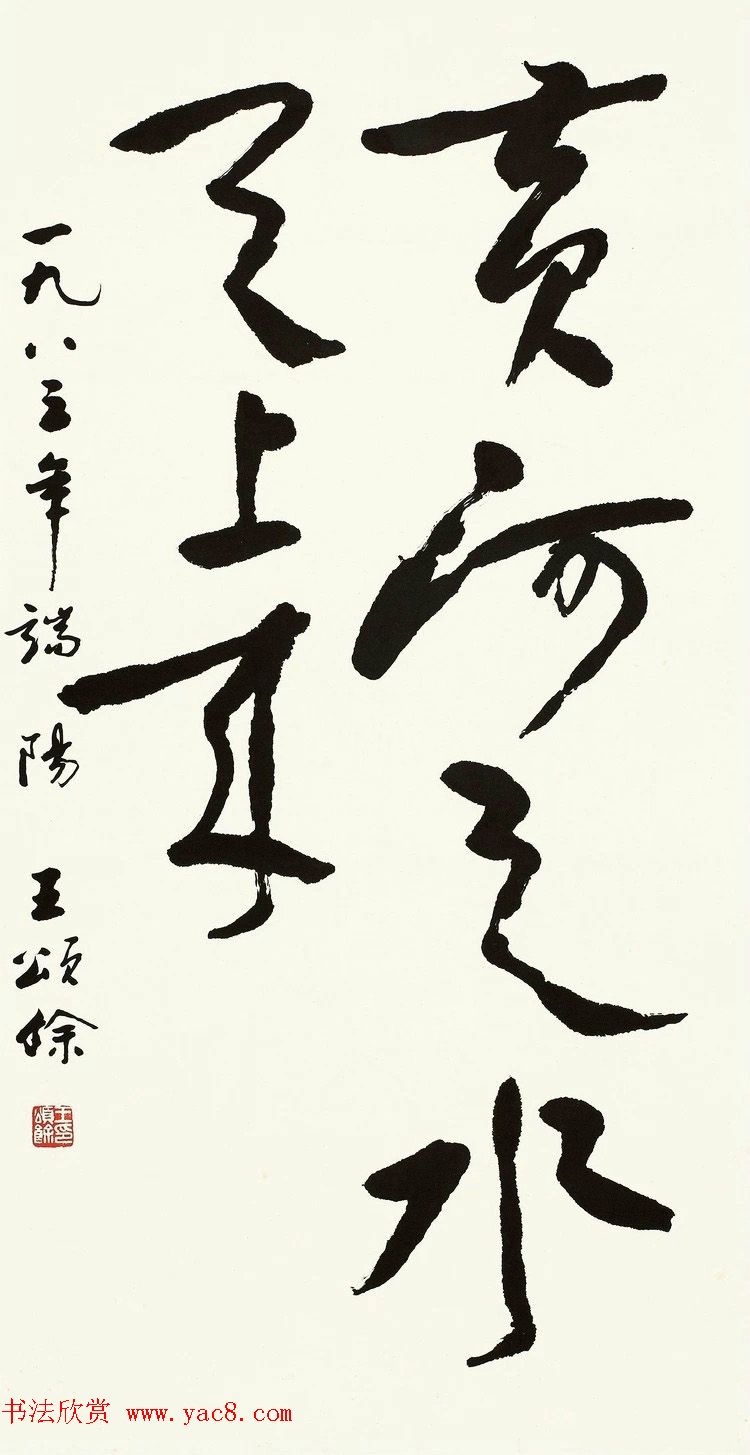 黄河之水
天上来
一九八三年端陽 王頌餘
王印頌餘
书法欣赏 www.yac8.com